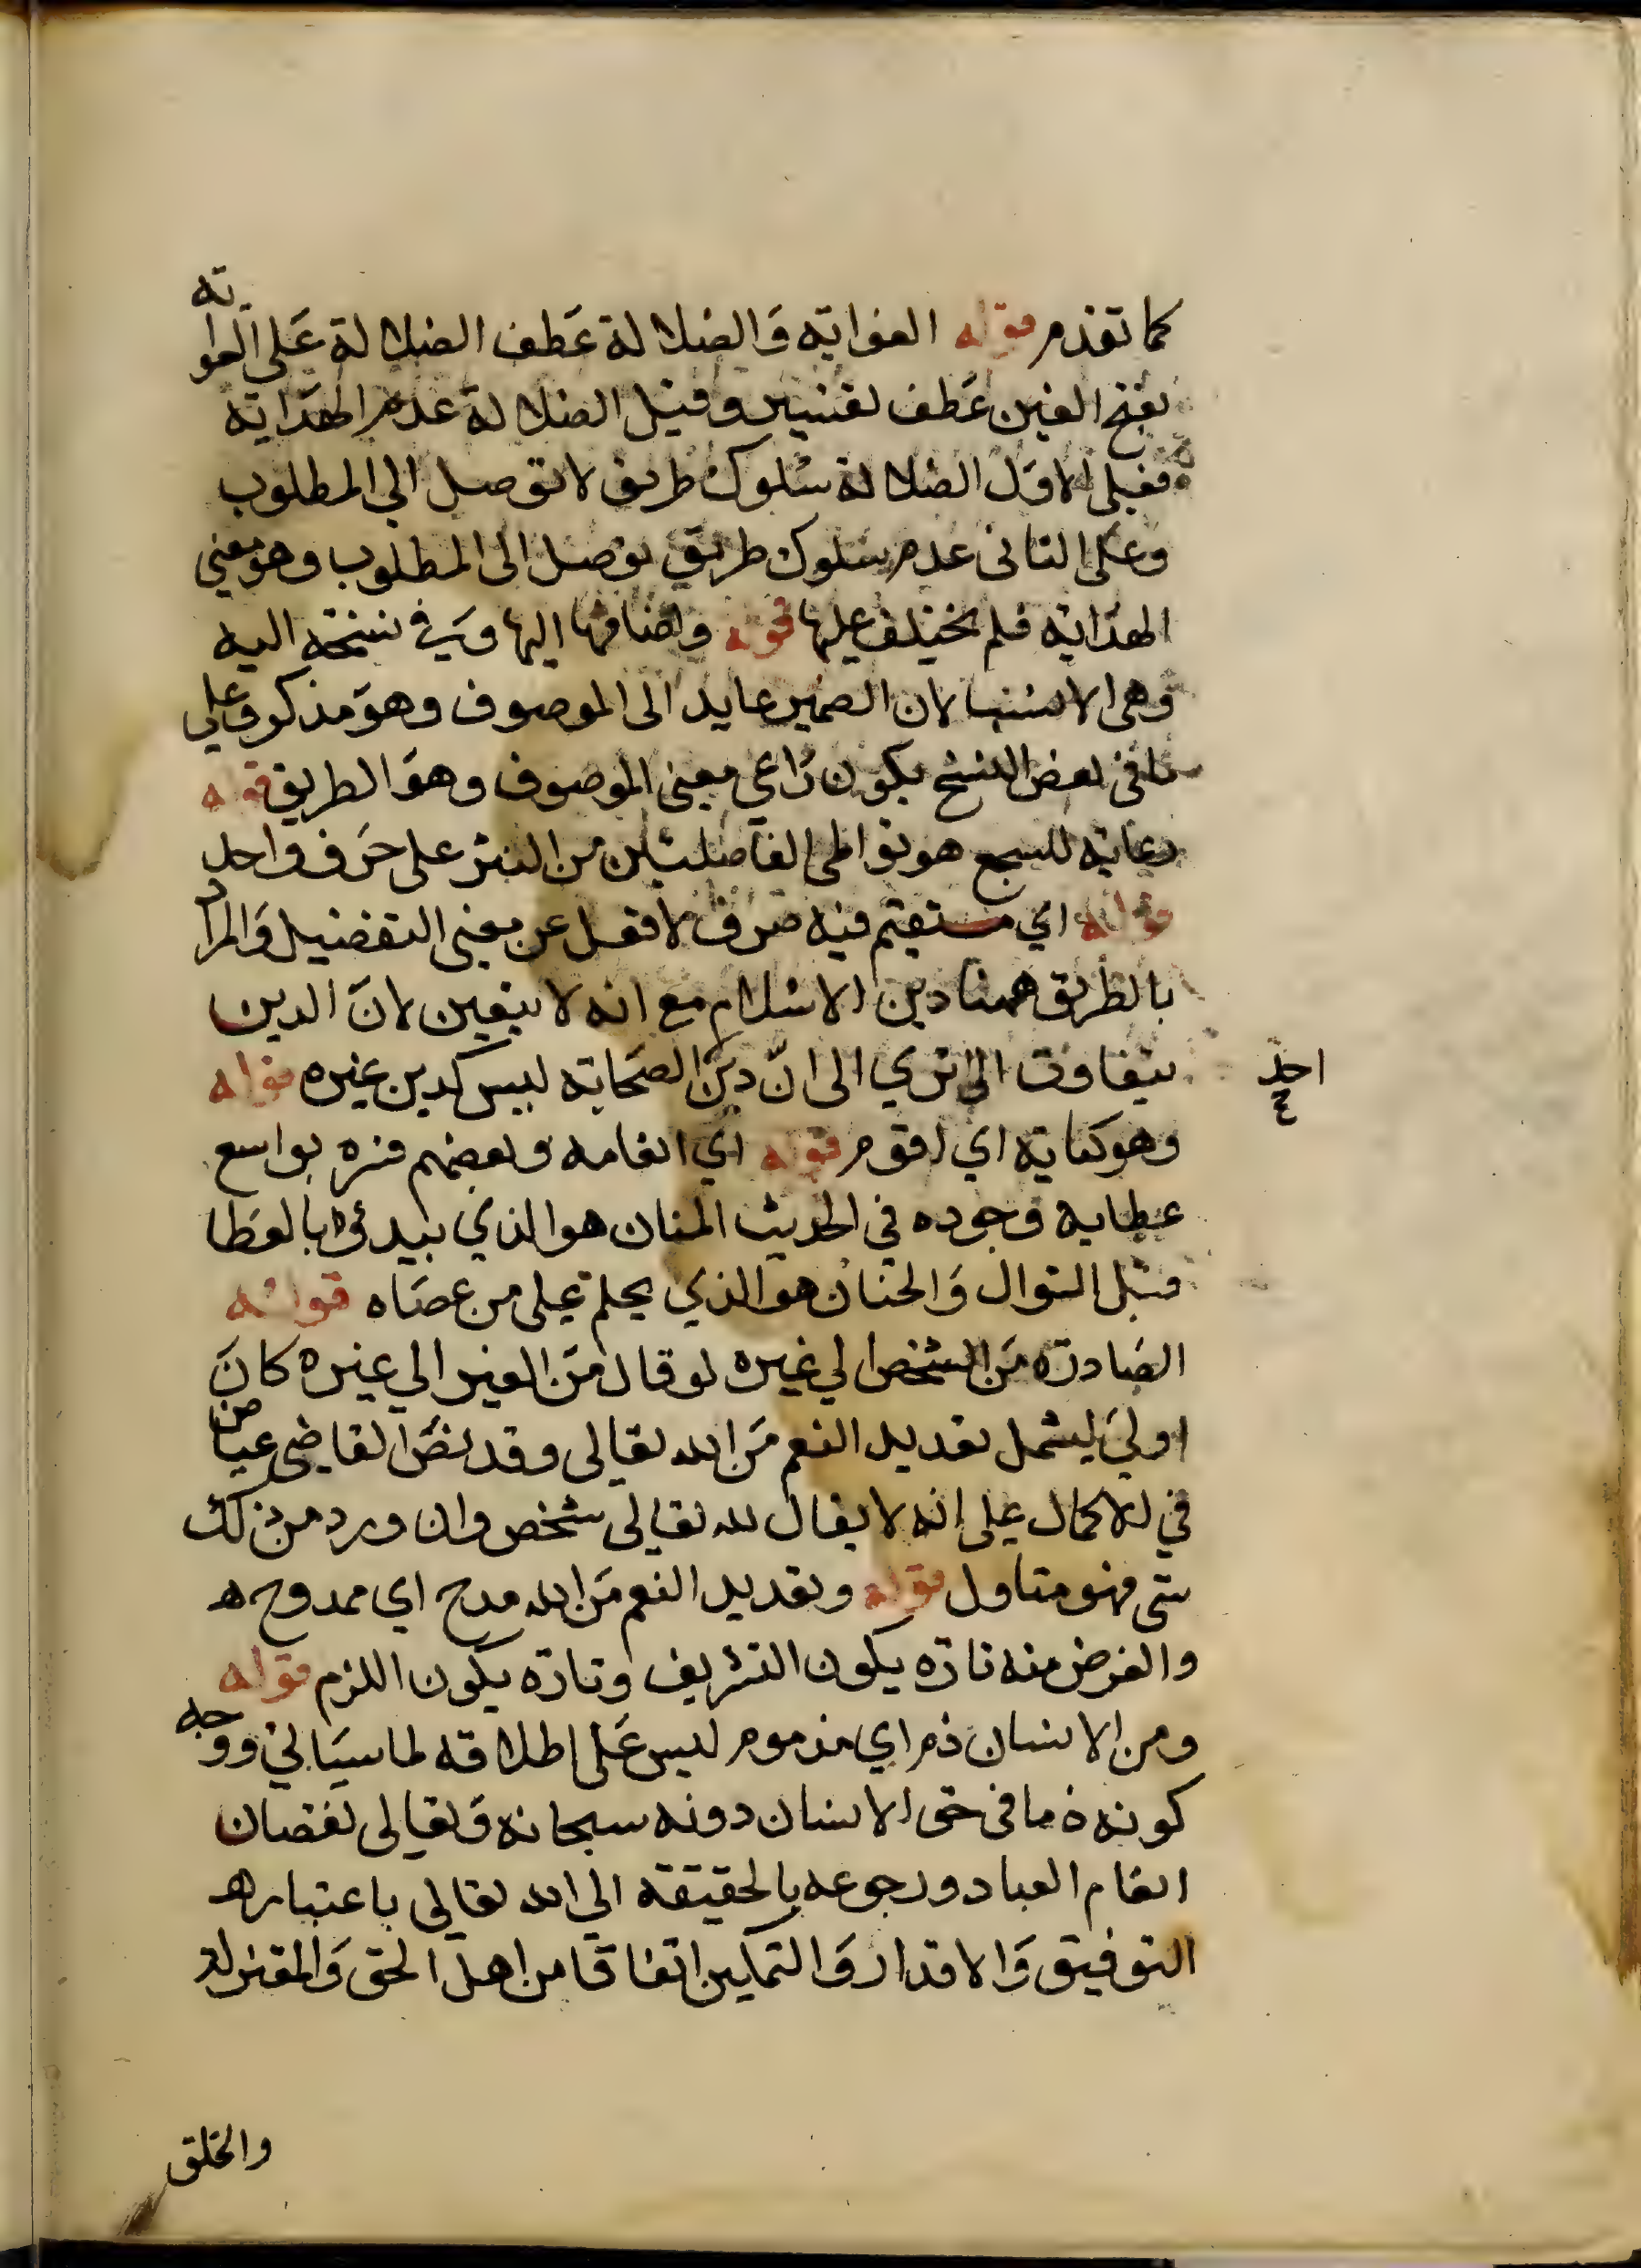 كما تقدم قوله الغواية وَالضلالة عَطف الضلالة عَلى الغواية
بفتح الغين عَطف تفسير وقيل الضلالة عدم الهدَاية
فعلى الاوَل الضلالة سُلوك طريق لا توصل الي المطلوب
وعلى الثاني عدم سلوك طريق توصل الى المطلوب وهو معني
الهدَاية فلم يختلف عليها قوله واضافتها اليها وَفي نسخة اليه
وهي الانسب لان الضمير عايد الى الموصوف وهوَ مذكر وعلي
ما في بعض النسخ يكون رَاعي معنى الموصوف وهوَ الطريق قوله
رعاية للسجع هو تواطي الفاصلتين من النثر على حَرف واحد
قوله اي مستقيم فيه صرف لافعل عن معنى التفضيل وَالمراد
بالطريق همنا دين الاسلام مع انه لا يتعين لانَ الدين
يتفاوت الى تري الى انّ دينَ الصحَابة ليس كدين غيره قوله
احد
ع
وهو كناية اي اقوم قوله اي انعامه وبعضهم فسره بواسع
عطايه وَجوده في الحديث المنان هو الذي يبدئ بالعَطا
قبل النوال وَالحنان هو الذي يحلم عَلى من عصَاه قوله
الصَادرة مَن الشخص الي غيره لو قال مَن الغير الي غيره كانَ
اوليَ ليشمل تعديد النعم مَن الله تعالى وقد نصَ القاضي عياض
في الاكمال على انه لا يقال لله تعالى شخص وان ورد من ذلك
شي فهو متاول قوله وتعديد النعم مَن الله مدح اي ممدوح ه
والغرض منه تارة يكون التشريف وتارة يكون اللزم قوله
ومن الانسان ذم اي مذموم ليس عَلى اطلاقه لما سيَاتي ووجه
كونه ذما في حق الانسان دونه سبحانه وَتعالى نقصان
انعَام العباد ورجوعه بالحقيقة الي الله تعالي باعتباره
التوفيق وَالاقدار وَالتمكين اتفاقا من اهل الحق وَالمعتزلة
والخلق